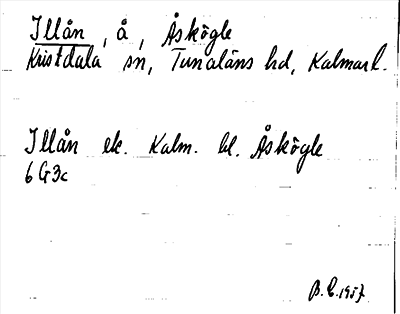 Illån, å, Åskögle
Kristdala sn, Tunaläns hd, Kalmar l.
Illån ek. Kalm. bl. Åskögle
6G3c
B.E. 1957